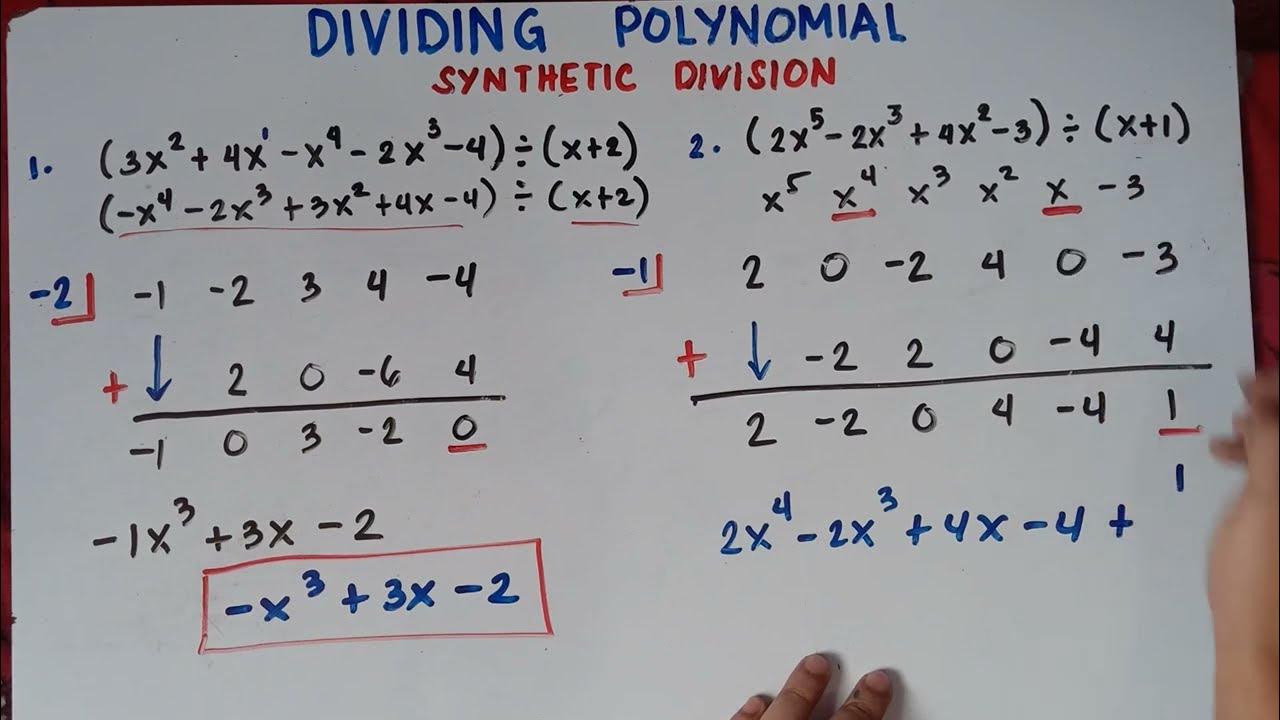 DIVIDING POLYNOMIAL
SYNTHETIC DIVISION
1. (3x² + 4x¹ - x⁴ - 2x³ - 4) ÷ (x+2)
(-x⁴ - 2x³ + 3x² + 4x - 4) ÷ (x+2)
-2 -1 -2 3 4 -4
+ ↓ 2 0 -6 4
-1 0 3 -2 0
-1x³ + 3x - 2
-x³ + 3x - 2
2. (2x⁵ - 2x³ + 4x² - 3) ÷ (x+1)
x⁵ x⁴ x³ x² x -3
-1 2 0 -2 4 0 -3
+ ↓ -2 2 0 -4 4
2 -2 0 4 -4 1
2x⁴ - 2x³ + 4x - 4 + 1